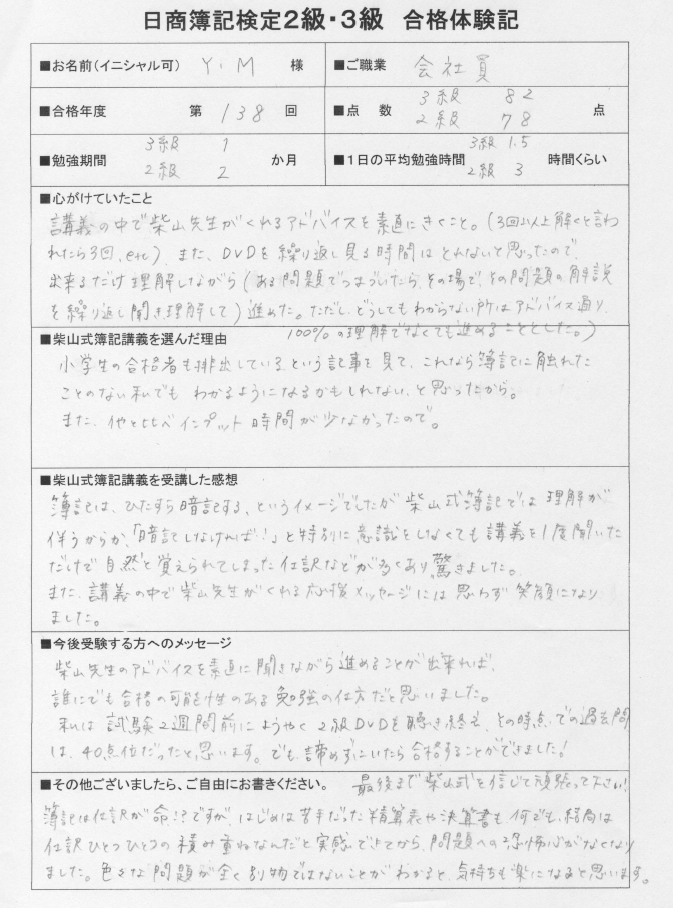 日商簿記検定2級・3級 合格体験記
■お名前(イニシャル可) Y.M 様
■ご職業 会社員
■合格年度 第 138 回
■点数 3級 82 2級 78 点
■勉強期間 3級 1 2級 2 か月
■1日の平均勉強時間 3級 1.5 2級 3 時間くらい
■心がけていたこと
講義の中で柴山先生がくれるアドバイスを素直にきくこと。(3回以上解くと言わ
れたら3回、etc) また、DVDを繰り返し見る時間はとれないと思ったので、
出来るだけ理解しながら(ある問題でつまづいたら、その場で、その問題の解説
を繰り返し聞き理解して)進めた。ただし、どうしてもわからない所はアドバイス通り、
100%の理解でなくても進めることとした。)
■柴山式簿記講義を選んだ理由
小学生の合格者も排出している、という記事を見て、これなら簿記に触れた
ことのない私でも わかるようになるかもしれない、と思ったから。
また、他と比べインプット時間が少なかったので。
■柴山式簿記講義を受講した感想
簿記は、ひたすら暗記する、というイメージでしたが 柴山式簿記では 理解が
伴うからか、「暗記しなければ!」と特別に意識をしなくても講義を1度聞いた
だけで自然と覚えられてしまった仕訳などが多くあり、驚きました。
また、講義の中で柴山先生がくれる応援メッセージには思わず笑顔になり
ました。
■今後受験する方へのメッセージ
柴山先生のアドバイスを素直に聞きながら進めることが出来れば、
誰にでも合格の可能性のある勉強の仕方だと思いました。
私は試験2週間前にようやく2級DVDを聴き終え、その時点での過去問
は、40点位だったと思います。でも諦めずにいたら合格することができました!
最後まで柴山式を信じて頑張って下さい!
■その他ございましたら、ご自由にお書きください。
簿記は仕訳が命!?ですが、はじめは苦手だった精算表や決算書も、何でも、結局は
仕訳ひとつひとつの積み重ねなんだと実感できてから、問題への恐怖心がなくなり
ました。色々な問題が全く別物ではないことがわかると、気持ちも楽になると思います。